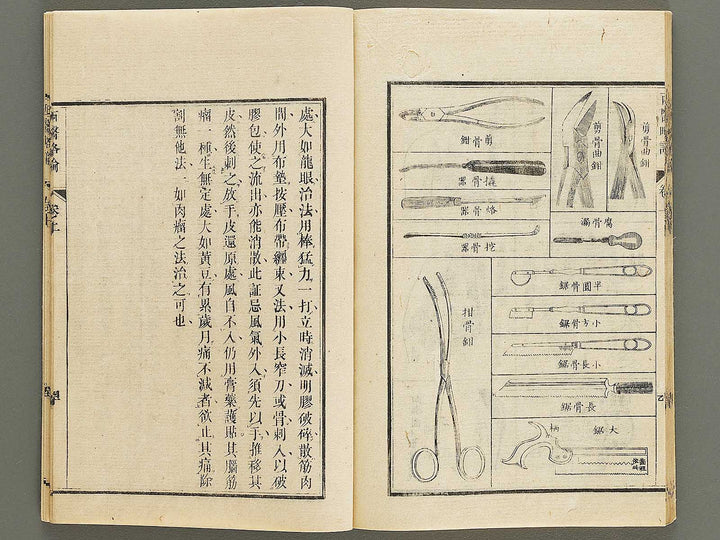 剪骨曲鉗
剪骨曲鉗
剪骨鉗
撬骨器
烙骨器
挖骨器
腐骨漏
半圓骨鋸
小方骨鋸
小長骨鋸
長骨鋸
大鋸
柄
拑骨鉗
處大如龍眼治法用棒猛力一打立時消滅明膠破碎散筋肉
間外用布墊按壓布帶纏束又法用小長窄刀或骨刺入以破
膠包使之流出亦能消散此証忌風氣外入須先以手推移其
皮然後刺之放手皮還原處風自不入仍用膏藥護貼其腦筋
瘤一種生無定處大如黃豆有累歲月痛不減者欲止其痛除
割無他法一如肉瘤之法治之可也
西醫略論
卷上